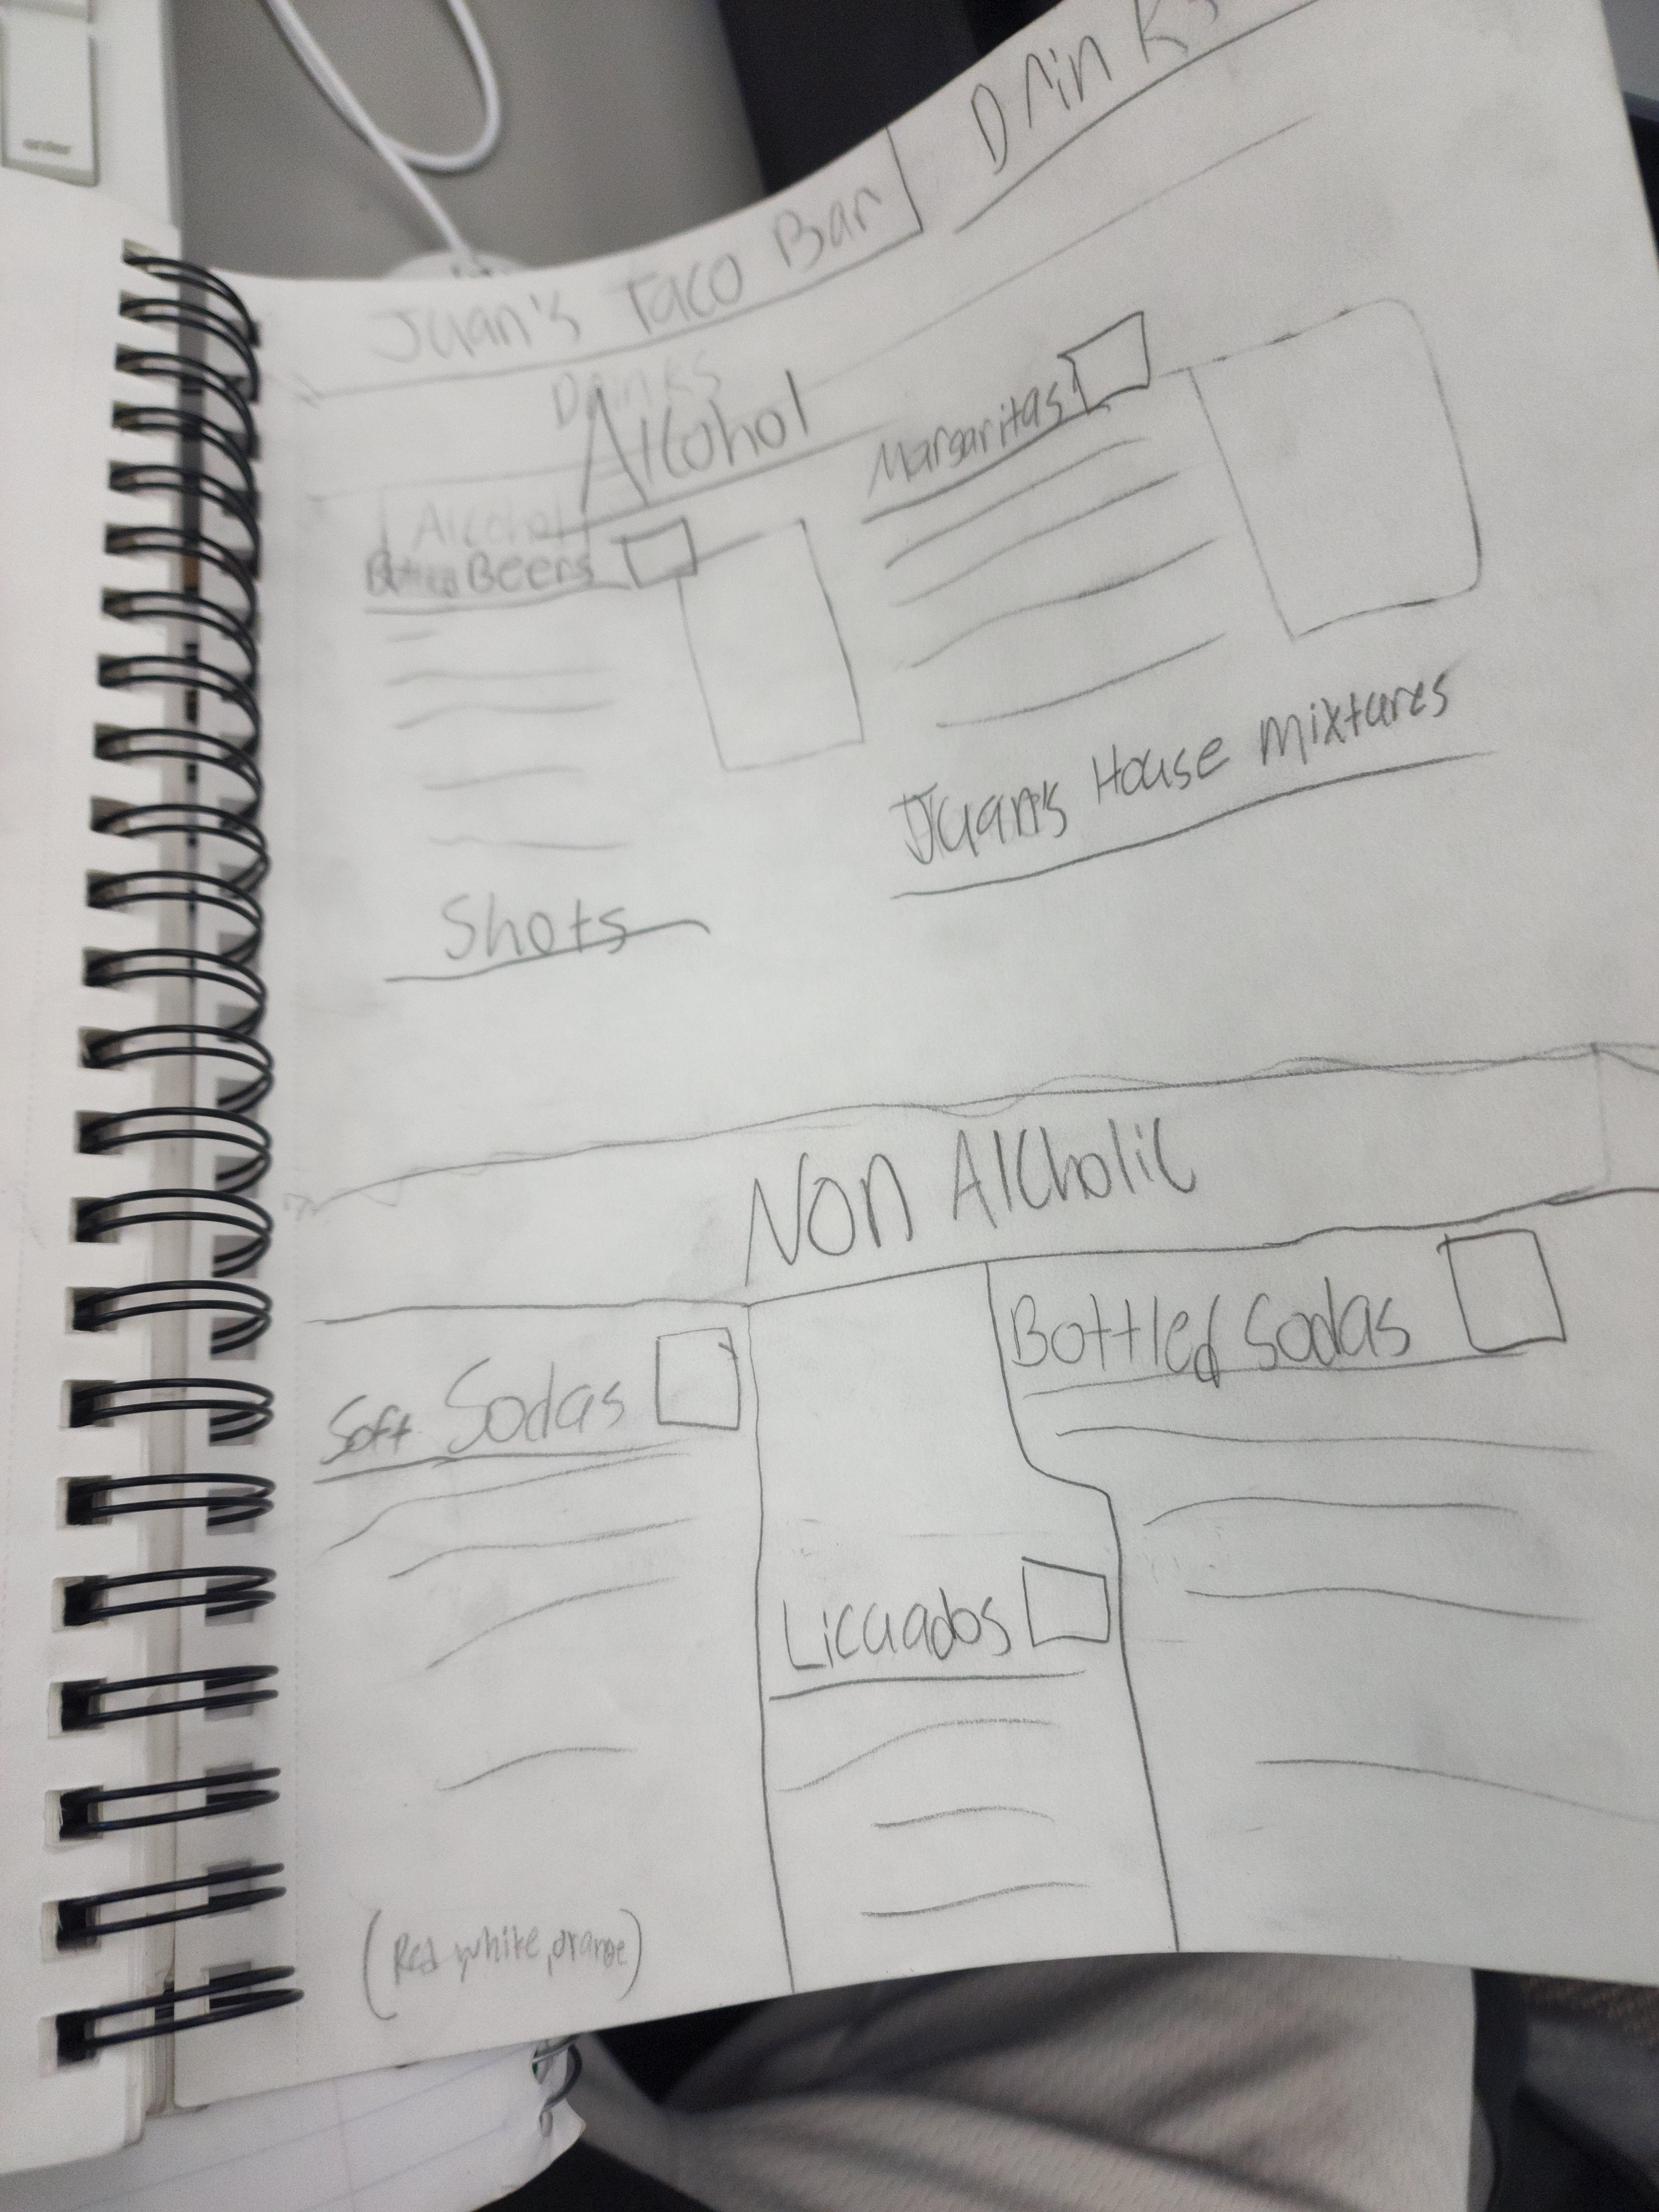 order
Juan's Taco Bar
Drinks
Drinks
Alcohol
Alcohol
Bottled Beers
Margaritas
Juan's House Mixtures
Shots
Non Alcholic
Soft Sodas
Bottled Sodas
Licuados
(Red, white, orange)